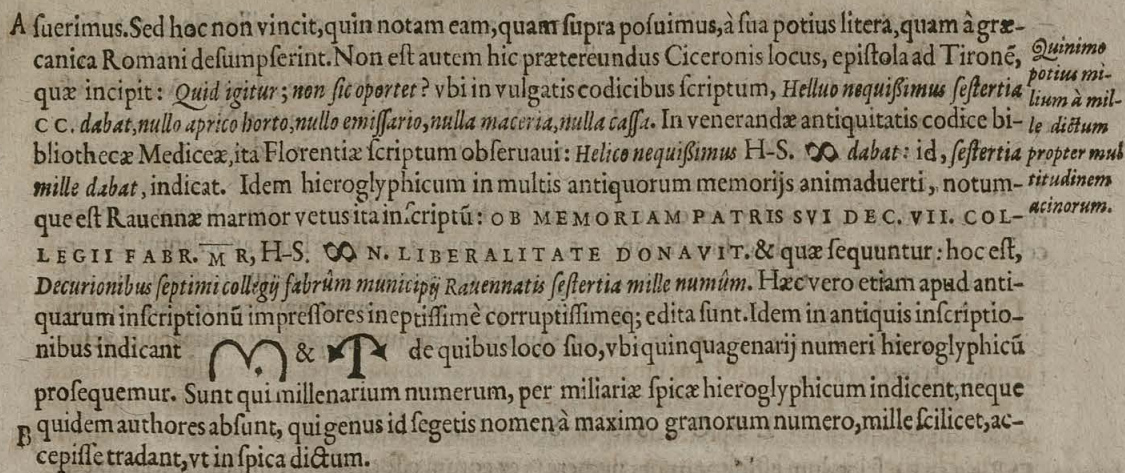 A ſuerimus.Sed hoc non vincit,quin notam eam,quam ſupra poſuimus,à ſua potius litera,quam à græ-
canica Romani deſumpſerint.Non eſt autem hic prætereundus Ciceronis locus, epiſtola ad Tironē,
quæ incipit: Quid igitur; non ſic oportet? vbi in vulgatis codicibus ſcriptum, Helluo nequißimus ſeſtertia
CC. dabat,nullo aprico horto,nullo emiſſario,nulla maceria,nulla caſſa. In venerandæ antiquitatis codice bi-
bliothecæ Mediceæ,ita Florentiæ ſcriptum obſeruaui: Helico nequißimus H-S. ꝏ dabat: id, ſeſtertia
mille dabat, indicat. Idem hieroglyphicum in multis antiquorum memorijs animaduerti, notum-
que eſt Rauennæ marmor vetus ita inſcriptū: OB MEMORIAM PATRIS SVI DEC. VII. COL-
LEGII FABR. M̅ R, H-S. ꝏ N. LIBERALITATE DONAVIT. & quæ ſequuntur: hoc eſt,
Decurionibus ſeptimi collegij fabrûm municipij Rauennatis ſeſtertia mille numûm. Hæc vero etiam apud anti-
quarum inſcriptionū impreſſores ineptiſſimè corruptiſſimeq; edita ſunt.Idem in antiquis inſcriptio-
nibus indicant & de quibus loco ſuo,vbi quinquagenarij numeri hieroglyphicū
proſequemur. Sunt qui millenarium numerum, per miliariæ ſpicæ hieroglyphicum indicent,neque
B quidem authores abſunt, qui genus id ſegetis nomen à maximo granorum numero,mille ſcilicet,ac-
cepiſſe tradant,vt in ſpica dictum.
Quinimo
potius mi-
lium à mil-
le dictum
propter mul
titudinem
acinorum.